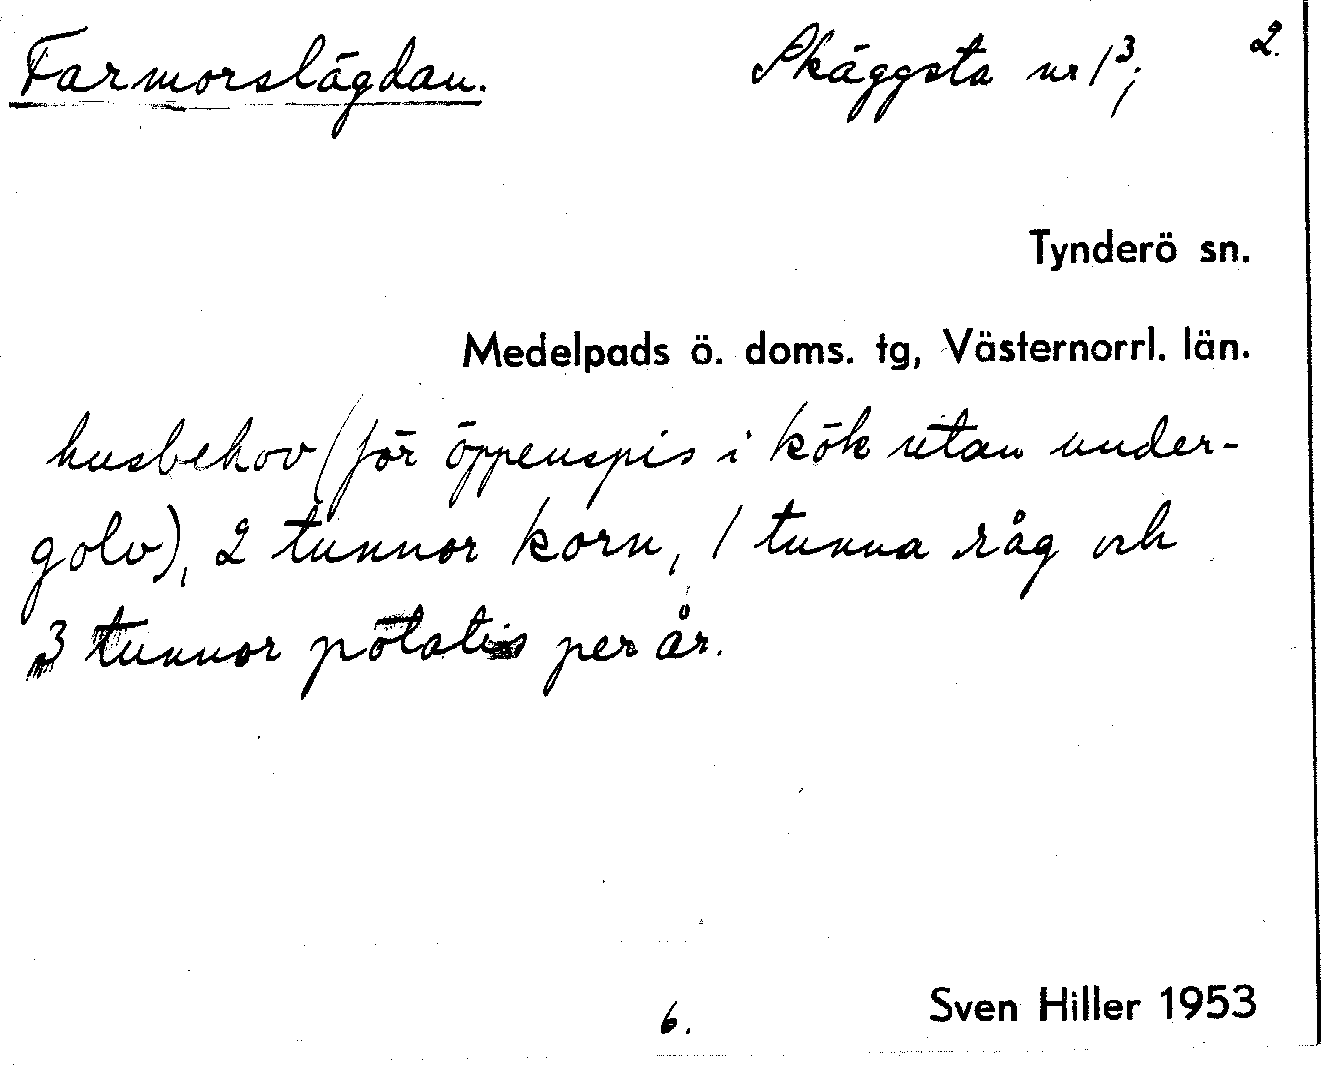 Farmorslägdan. Skäggsta nr 1³; 2.
Tynderö sn.
Medelpads ö. doms. tg, Västernorrl. län.
husbehov (för öppenspis i kök utan under-
golv), 2 tunnor korn, 1 tunna råg och
3 tunnor potatis per år.
6. Sven Hiller 1953